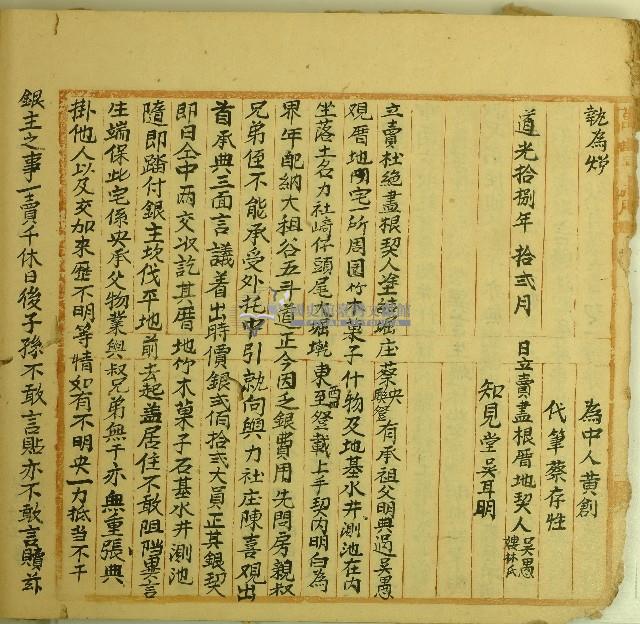 執為炤　為中人黃創
代筆蔡存性
道光拾捌年　拾弍月　日立賣盡根厝地契人吳愚 林氏
知見堂吳耳明
立賣杜絕盡根契人塗 堀庄蔡央 有承祖父明典過吳愚
觀厝地 宅一所周圍竹木菓子什物及地基水井測池在內
坐落土名力社崎仔頭尾大堀墘東至登載上手契內明白為
界年配納大租谷五斗道正今因乏銀費用先問房親叔
兄弟侄不能承受外托中引就向與力社庄陳喜觀出
首承典三面言議着出時價銀弍佰拾弍大員正其銀契
即日仝中兩交收訖其厝地竹木菓子石基水井測池
隨即踏付銀主坎伐平地前去起盖居住不敢阻擋異言
生端保此宅係央承父物業與叔兄弟無干亦無重張典
掛他人以及交加來歷不明等情如有不明央一力抵当不干
銀主之事一賣千休日後子孫不敢言貼亦不敢言贖玆